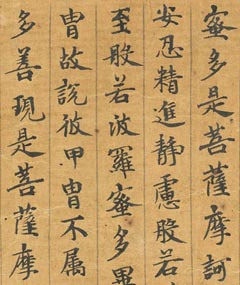 蜜多是菩薩摩訶
安忍精進靜慮般若
至般若波羅蜜多畢
冑故説彼甲冑不属
多善現是菩薩摩